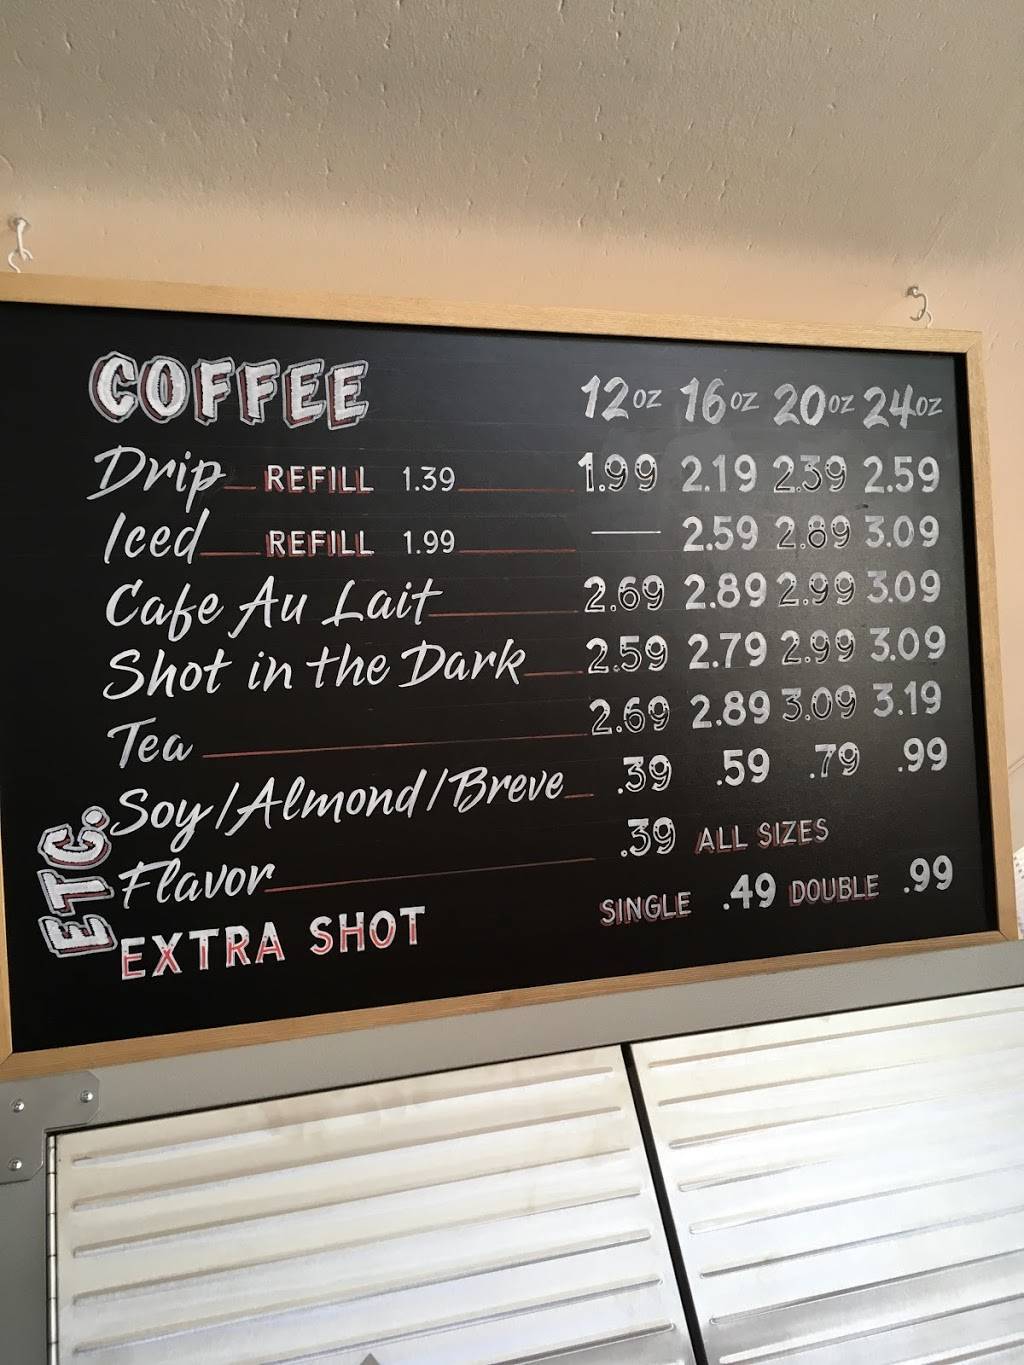 COFFEE 12oz 16oz 20oz 24oz
Drip REFILL 1.39 1.99 2.19 2.39 2.59
Iced REFILL 1.99 — 2.59 2.89 3.09
Cafe Au Lait 2.69 2.89 2.99 3.09
Shot in the Dark 2.59 2.79 2.99 3.09
Tea 2.69 2.89 3.09 3.19
ETC.
Soy/Almond/Breve .39 .59 .79 .99
Flavor .39 ALL SIZES
EXTRA SHOT SINGLE .49 DOUBLE .99